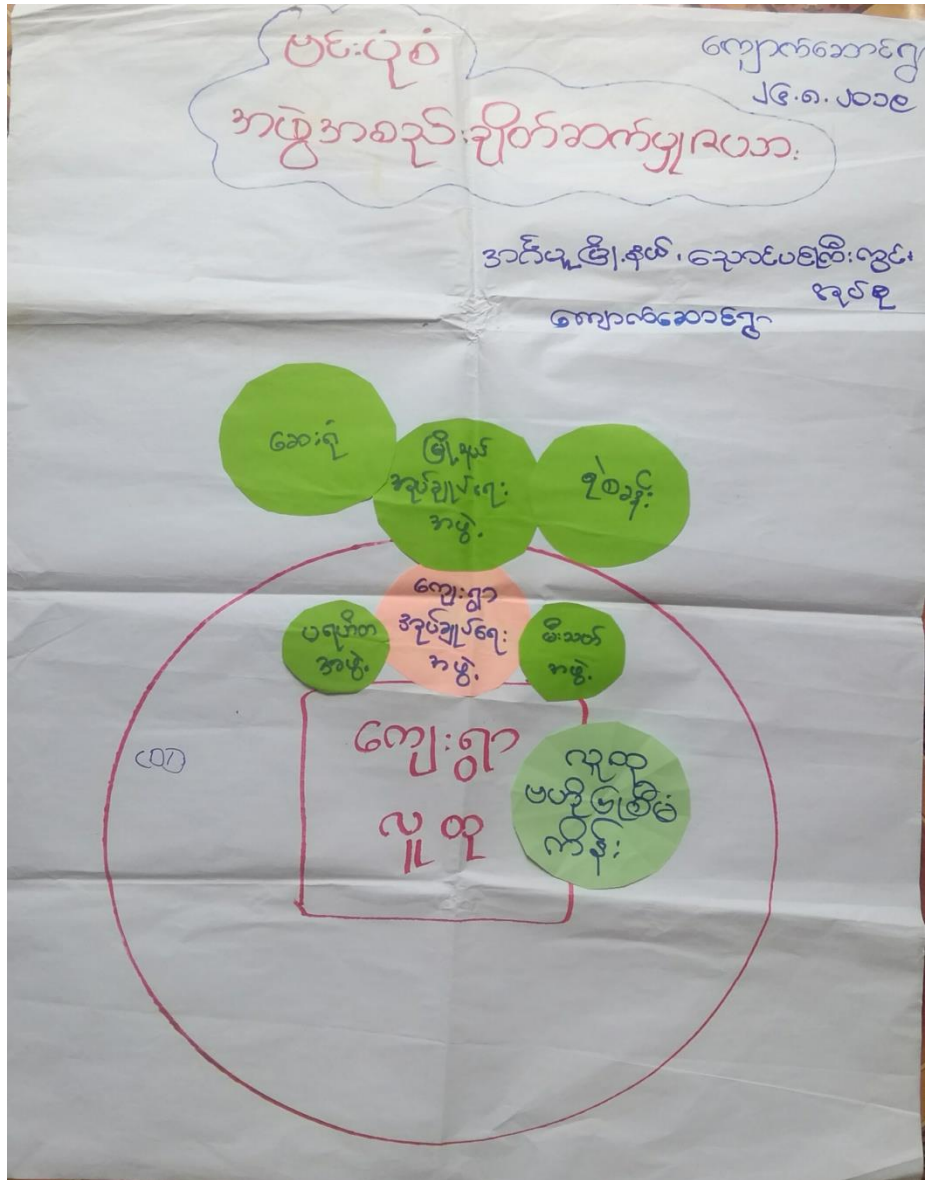 ဗင်းပုံစံ
အဖွဲ့အစည်းချိတ်ဆက်မှုဇယား
ကျောက်ဆောင်ရွာ
၂၄.၈.၂၀၁၉
အင်္ဂပူမြို့နယ်၊ ညောင်ပင်ကြီးကွင်း
အုပ်စု
ကျောက်ဆောင်ရွာ
ဆေးရုံ
မြို့နယ်
အုပ်ချုပ်ရေး
အဖွဲ့
ရဲစခန်း
ပရဟိတ
အဖွဲ့
ကျေးရွာ
အုပ်ချုပ်ရေး
အဖွဲ့
မီးသတ်
အဖွဲ့
ကျေးရွာ
လူထု
လူထု
ဗဟိုပြုစီမံ
ကိန်း
CDD